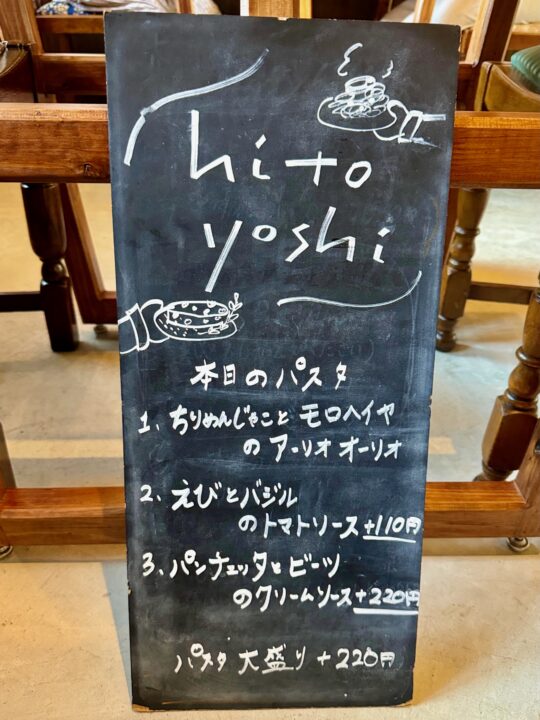 hito
yoshi
本日のパスタ
1、ちりめんじゃことモロヘイヤ
のアーリオオーリオ
2、えびとバジル
のトマトソース+110円
3、パンチェッタとビーツ
のクリームソース+220円
パスタ大盛り+220円